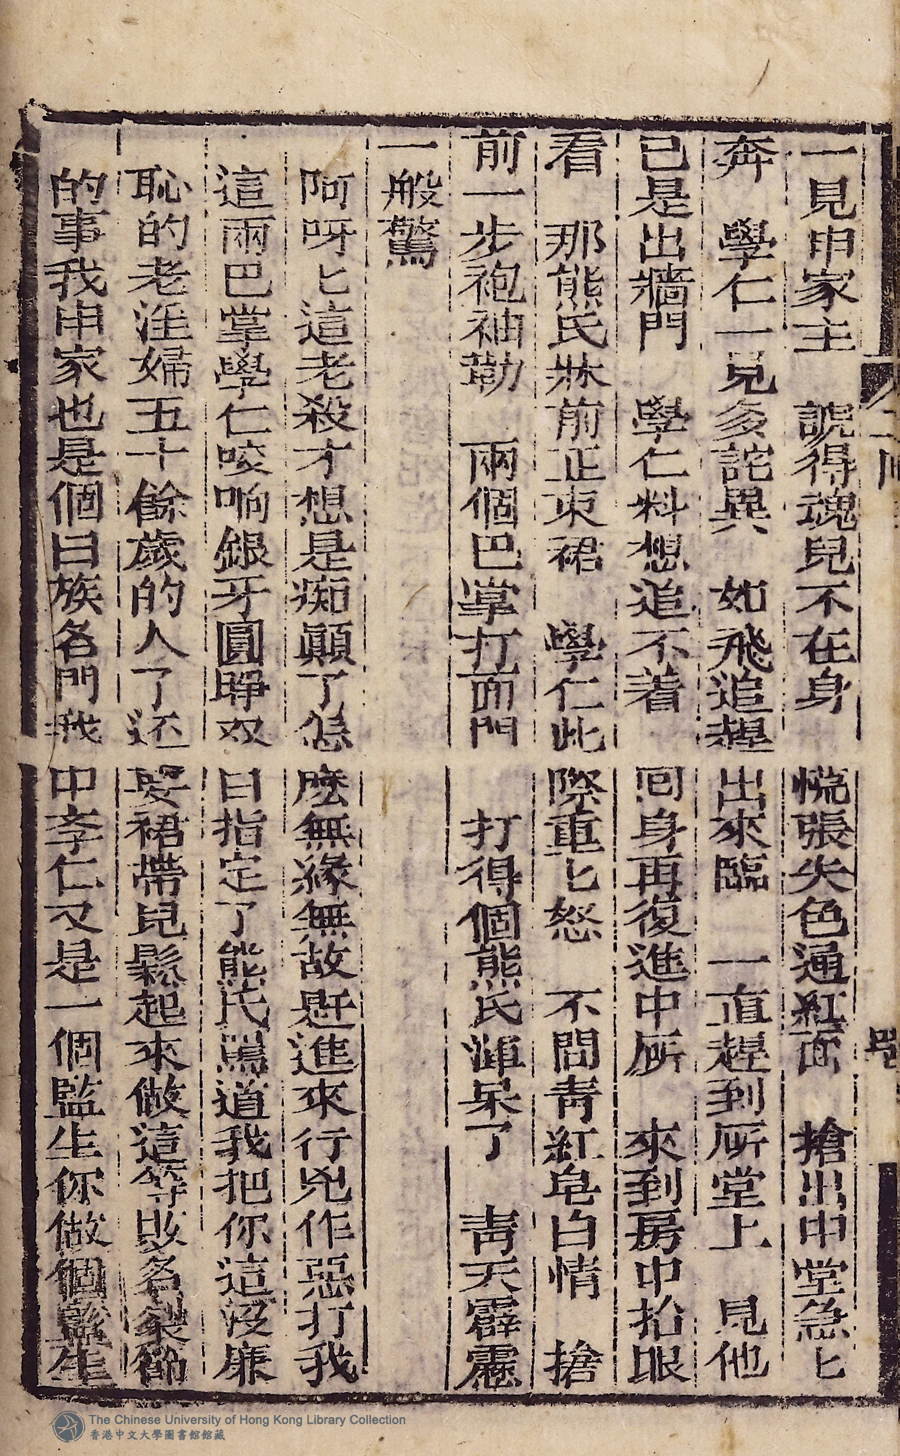 一見申家主　諕得魂兒不在身　慌張失色通紅面　搶出中堂急匕
奔　學仁一見多詫異　如飛追趕出來臨　一直趕到所堂上　見他
已是出牆門　學仁料想追不着　囘身再復進中所　來到房中抬眼
看　那熊氏牀前正束裙　學仁此際重匕怒　不問青紅皂白情　搶
前一步袍袖勒　兩個巴掌打面門　打得個熊氏渾呆了　青天霹靂
一般驚
阿呀匕這老殺才想是痴顛了怎麼無緣無故趕進來行兇作惡打我
這兩巴掌學仁咬响銀牙圓睜双目指定了熊氏罵道我把你這没廉
恥的老淫婦五十餘歲的人了还要裙帶兒鬆起來做這等敗名裂節
的事我申家也是個曰族名門我中孝仁又是一個監生你做個監生
二囘
The Chinese University of Hong Kong Library Collection
香港中文大學圖書館館藏